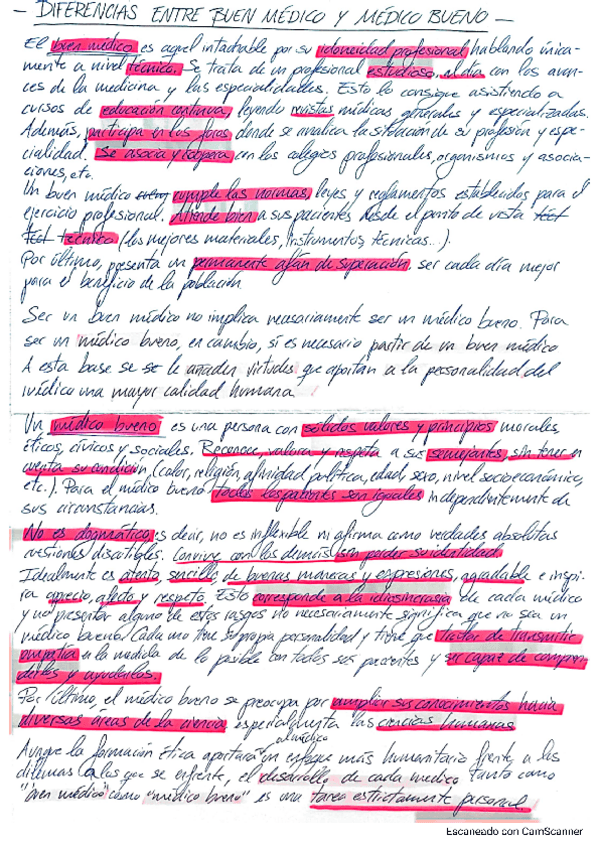 - DIFERENCIAS ENTRE BUEN MÉDICO Y MÉDICO BUENO -
El buen médico es aquel intachable por su idoneidad profesional, hablando única-
mente a nivel técnico. Se trata de un profesional estudioso, al día con los avan-
ces de la medicina y las especialidades. Esto lo consigue asistiendo a
cursos de educación continua, leyendo revistas médicas, generales y especializadas.
Además, participa en los foros donde se analiza la situación de su profesión y espe-
cialidad. Se asocia y coopera con los colegios profesionales, organismos y asocia-
ciones, etc.
Un buen médico cumple las normas, leyes y reglamentos establecidos para el
ejercicio profesional. Atiende bien a sus pacientes desde el punto de vista
técnico (los mejores materiales, instrumentos, técnicas...).
Por último, presenta un permanente afán de superación, ser cada día mejor
para el beneficio de la población.
Ser un buen médico no implica necesariamente ser un médico bueno. Para
ser un médico bueno, en cambio, sí es necesario partir de un buen médico
A esta base se le añaden virtudes que aportan a la personalidad del
médico una mayor calidad humana.
Un médico bueno es una persona con sólidos valores y principios morales,
éticos, cívicos y sociales. Reconoce, valora y respeta a sus semejantes, sin tener en
cuenta su condición (color, religión, afinidad política, edad, sexo, nivel socioeconómico,
etc.). Para el médico bueno todos los pacientes son iguales independientemente de
sus circunstancias.
No es dogmático, es decir, no es inflexible ni afirma como verdades absolutas
cuestiones discutibles. Convive con los demás sin perder su identidad.
Idealmente es atento, sencillo, de buenas maneras y expresiones, agradable e inspi-
ra aprecio, afecto y respeto. Esto corresponde a la idiosincrasia de cada médico
y no presentar alguno de estos rasgos no necesariamente significa que no sea un
médico bueno. Cada uno tiene su propia personalidad y tiene que tratar de transmitir
empatía en la medida de lo posible con todos sus pacientes y ser capaz de compren-
derlos y ayudarlos.
Por último, el médico bueno se preocupa por ampliar sus conocimientos hacia
diversas áreas de la ciencia especialmente las ciencias humanas
Aunque la formación ética aportará al médico un enfoque más humanitario frente a los
dilemas a los que se enfrente, el desarrollo de cada médico tanto como
"buen médico" como "médico bueno" es una tarea estrictamente personal.
Escaneado con CamScanner